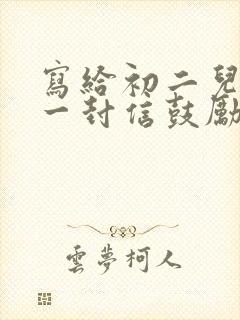 寫給初二兒
一封信鼓勵
雲夢柯人